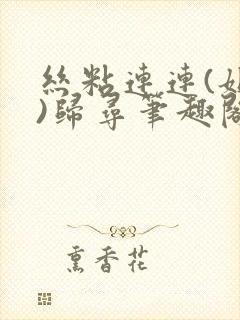 絲粘連連(
)歸尋筆趣閣
熏香花